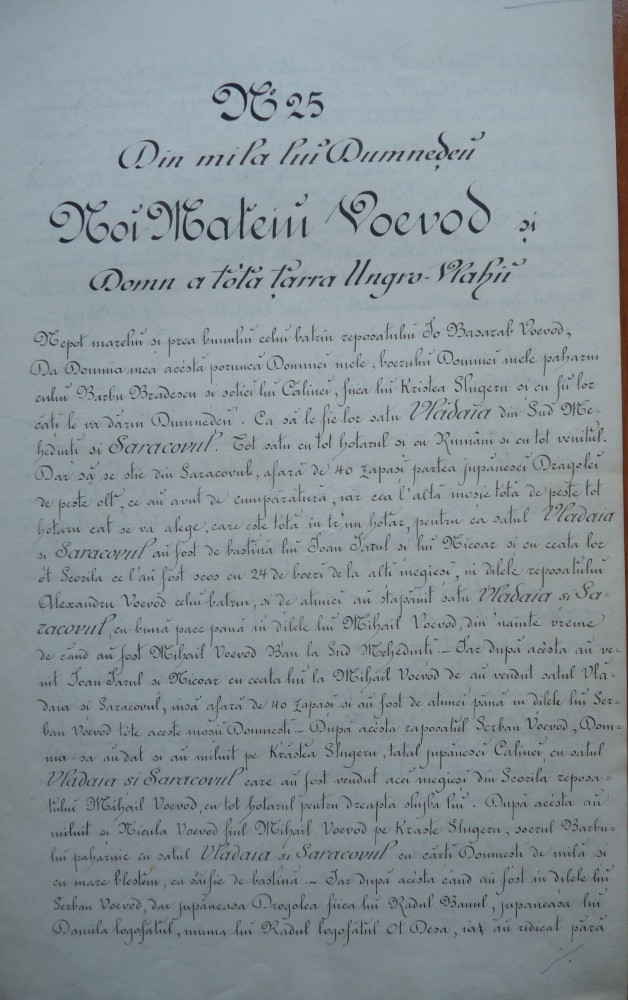 No 25
Din mila lui Dumnedeŭ
Noi Mateiu Voevod și
Domn a totă țarra Ungro-Vlahiĭ
Nepot marelui și prea bunului celui batrin reposatului Io Basarab Voevod,
Da Domnia mea acéstă poruncă Domnieĭ mele, boeruluĭ Domnieĭ mele paharni
culuĭ Barbu Bradescu si soției luĭ Călineĭ, fiica luĭ Kristea Slugeru si cu fiĭ lor
câți le va dărui Dumnedeŭ. Ca să le fie lor satu Vlădaia din Sud Me-
hedinti si Saracovul. Tot satu cu tot hotarul si cu Rumâni si cu tot venitul.
Dar să se stie din Saracovul, afară de 40 zapași partea jupâneseĭ Dragoleĭ
de peste olt, ce au avut de cumpărătură, iar cea l'altă mosie totă de peste tot
hotaru cat se va alege, care este totă in tr'un hotar, pentru ca satul Vladaia
si Saracovul aŭ fost de bastină luĭ Ioan Iarul si luĭ Nicoar si cu ceata lor
ot Scorila ce l'aŭ fost scos cu 24 de boerĭ de la altĭ megiesĭ, in dilele reposatuluĭ
Alexandru Voevod celuĭ batrin, si de atuncĭ aŭ stapânit satu Vladaia si Sa-
racovul, cu bună pace pană in dilele luĭ Mihail Voevod, din nainte vreme
de când aŭ fost Mihail Voevod Ban la Sud Mehedinti – Iar după acésta aŭ ve-
nit Ioan Iarul si Nicoar cu ceata luĭ la Mihail Voevod de aŭ vendut satul Vla-
daia si Saracovul, insă afară de 40 zapasi si aŭ fost de atuncĭ pănă in dilele luĭ Ser-
ban Voevod tote aceste mosiĭ Domnestĭ – După acésta raposatul Serban Voevod, Dom-
nia-sa aŭ dat si aŭ miluit pe Krăstea Slugeru, tatal jupâneseĭ Calineĭ cu satul
Vladaia si Saracovul care aŭ fost vendut aceĭ megiesĭ din Scorila reposa-
tuluĭ Mihail Voevod, cu tot hotarul pentru dreapta slujba luĭ. După acésta aŭ
miluit și Nicula Voevod fiul Mihail Voevod pe Kraste Slugeru, socrul Barbu-
luĭ paharnic cu satul Vladaia si Saracovul cu cărtĭ Domnestĭ de milă si
cu mare blestem, ca săĭ fie de bastină – Iar după acésta când aŭ fost in dilele luĭ
Serban Voevod, dar jupâneasa Drogolea fiica luĭ Radul Banul, jupaneasa luĭ
Danula logofătul, muma luĭ Radul logofătul Ot Desa, iar aŭ ridicat pără